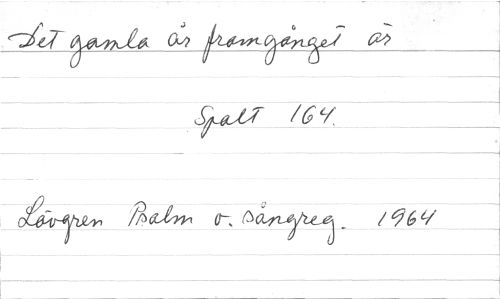 Det gamla år framgånget är
Spalt 164.
Lövgren Psalm o. sångreg. 1964